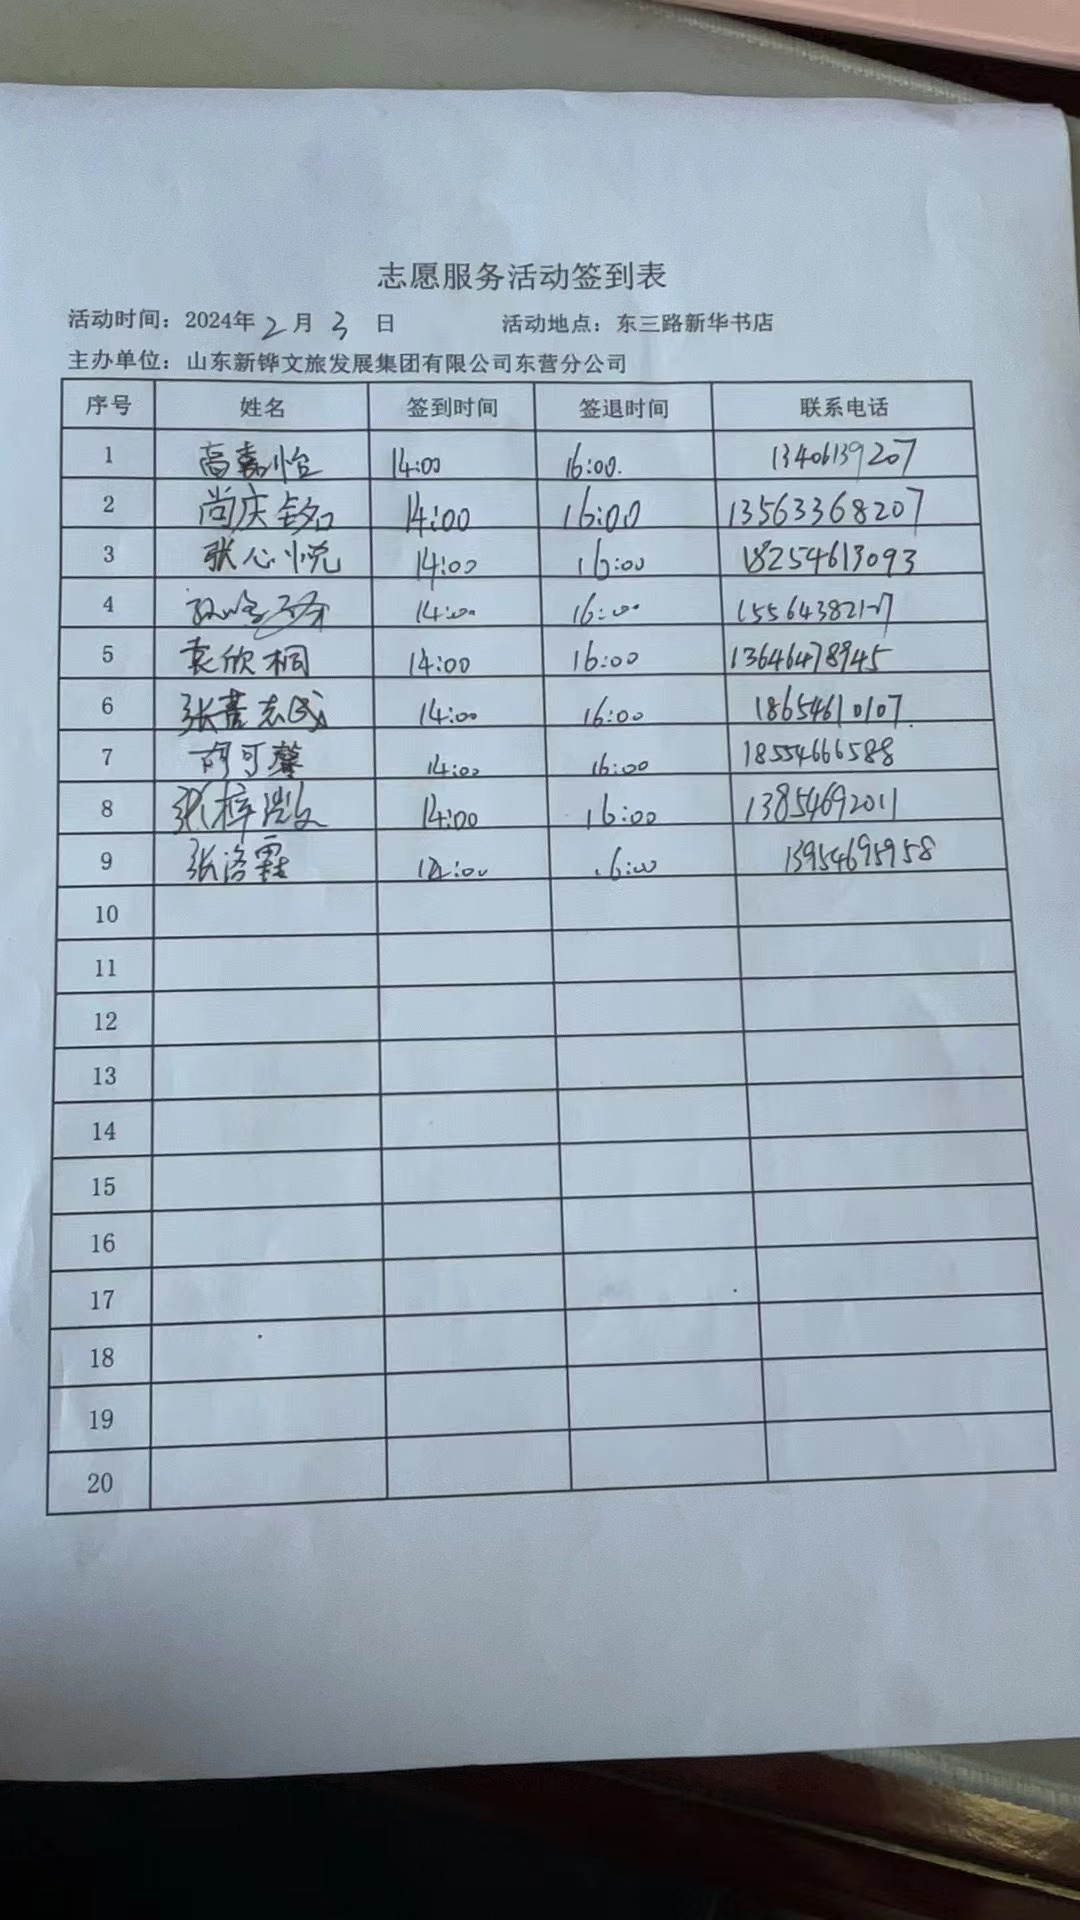 志愿服务活动签到表
活动时间：2024年2月3日 活动地点：东三路新华书店
主办单位：山东新铧文旅发展集团有限公司东营分公司
序号 姓名 签到时间 签退时间 联系电话
1 高嘉怡 14:00 16:00. 13406139207
2 尚庆铭 14:00 16:00 13563368207
3 张心悦 14:00 16:00 18254613093
4 14:00 16:00
5 袁欣桐 14:00 16:00 13646478945
6 14:00 16:00 18654610107.
7 胡可馨 14:00 16:00 18554666588
8 14:00 16:00 13854692011
9 张洛霖 14:00 16:00 13954695958
10
11
12
13
14
15
16
17
18
19
20